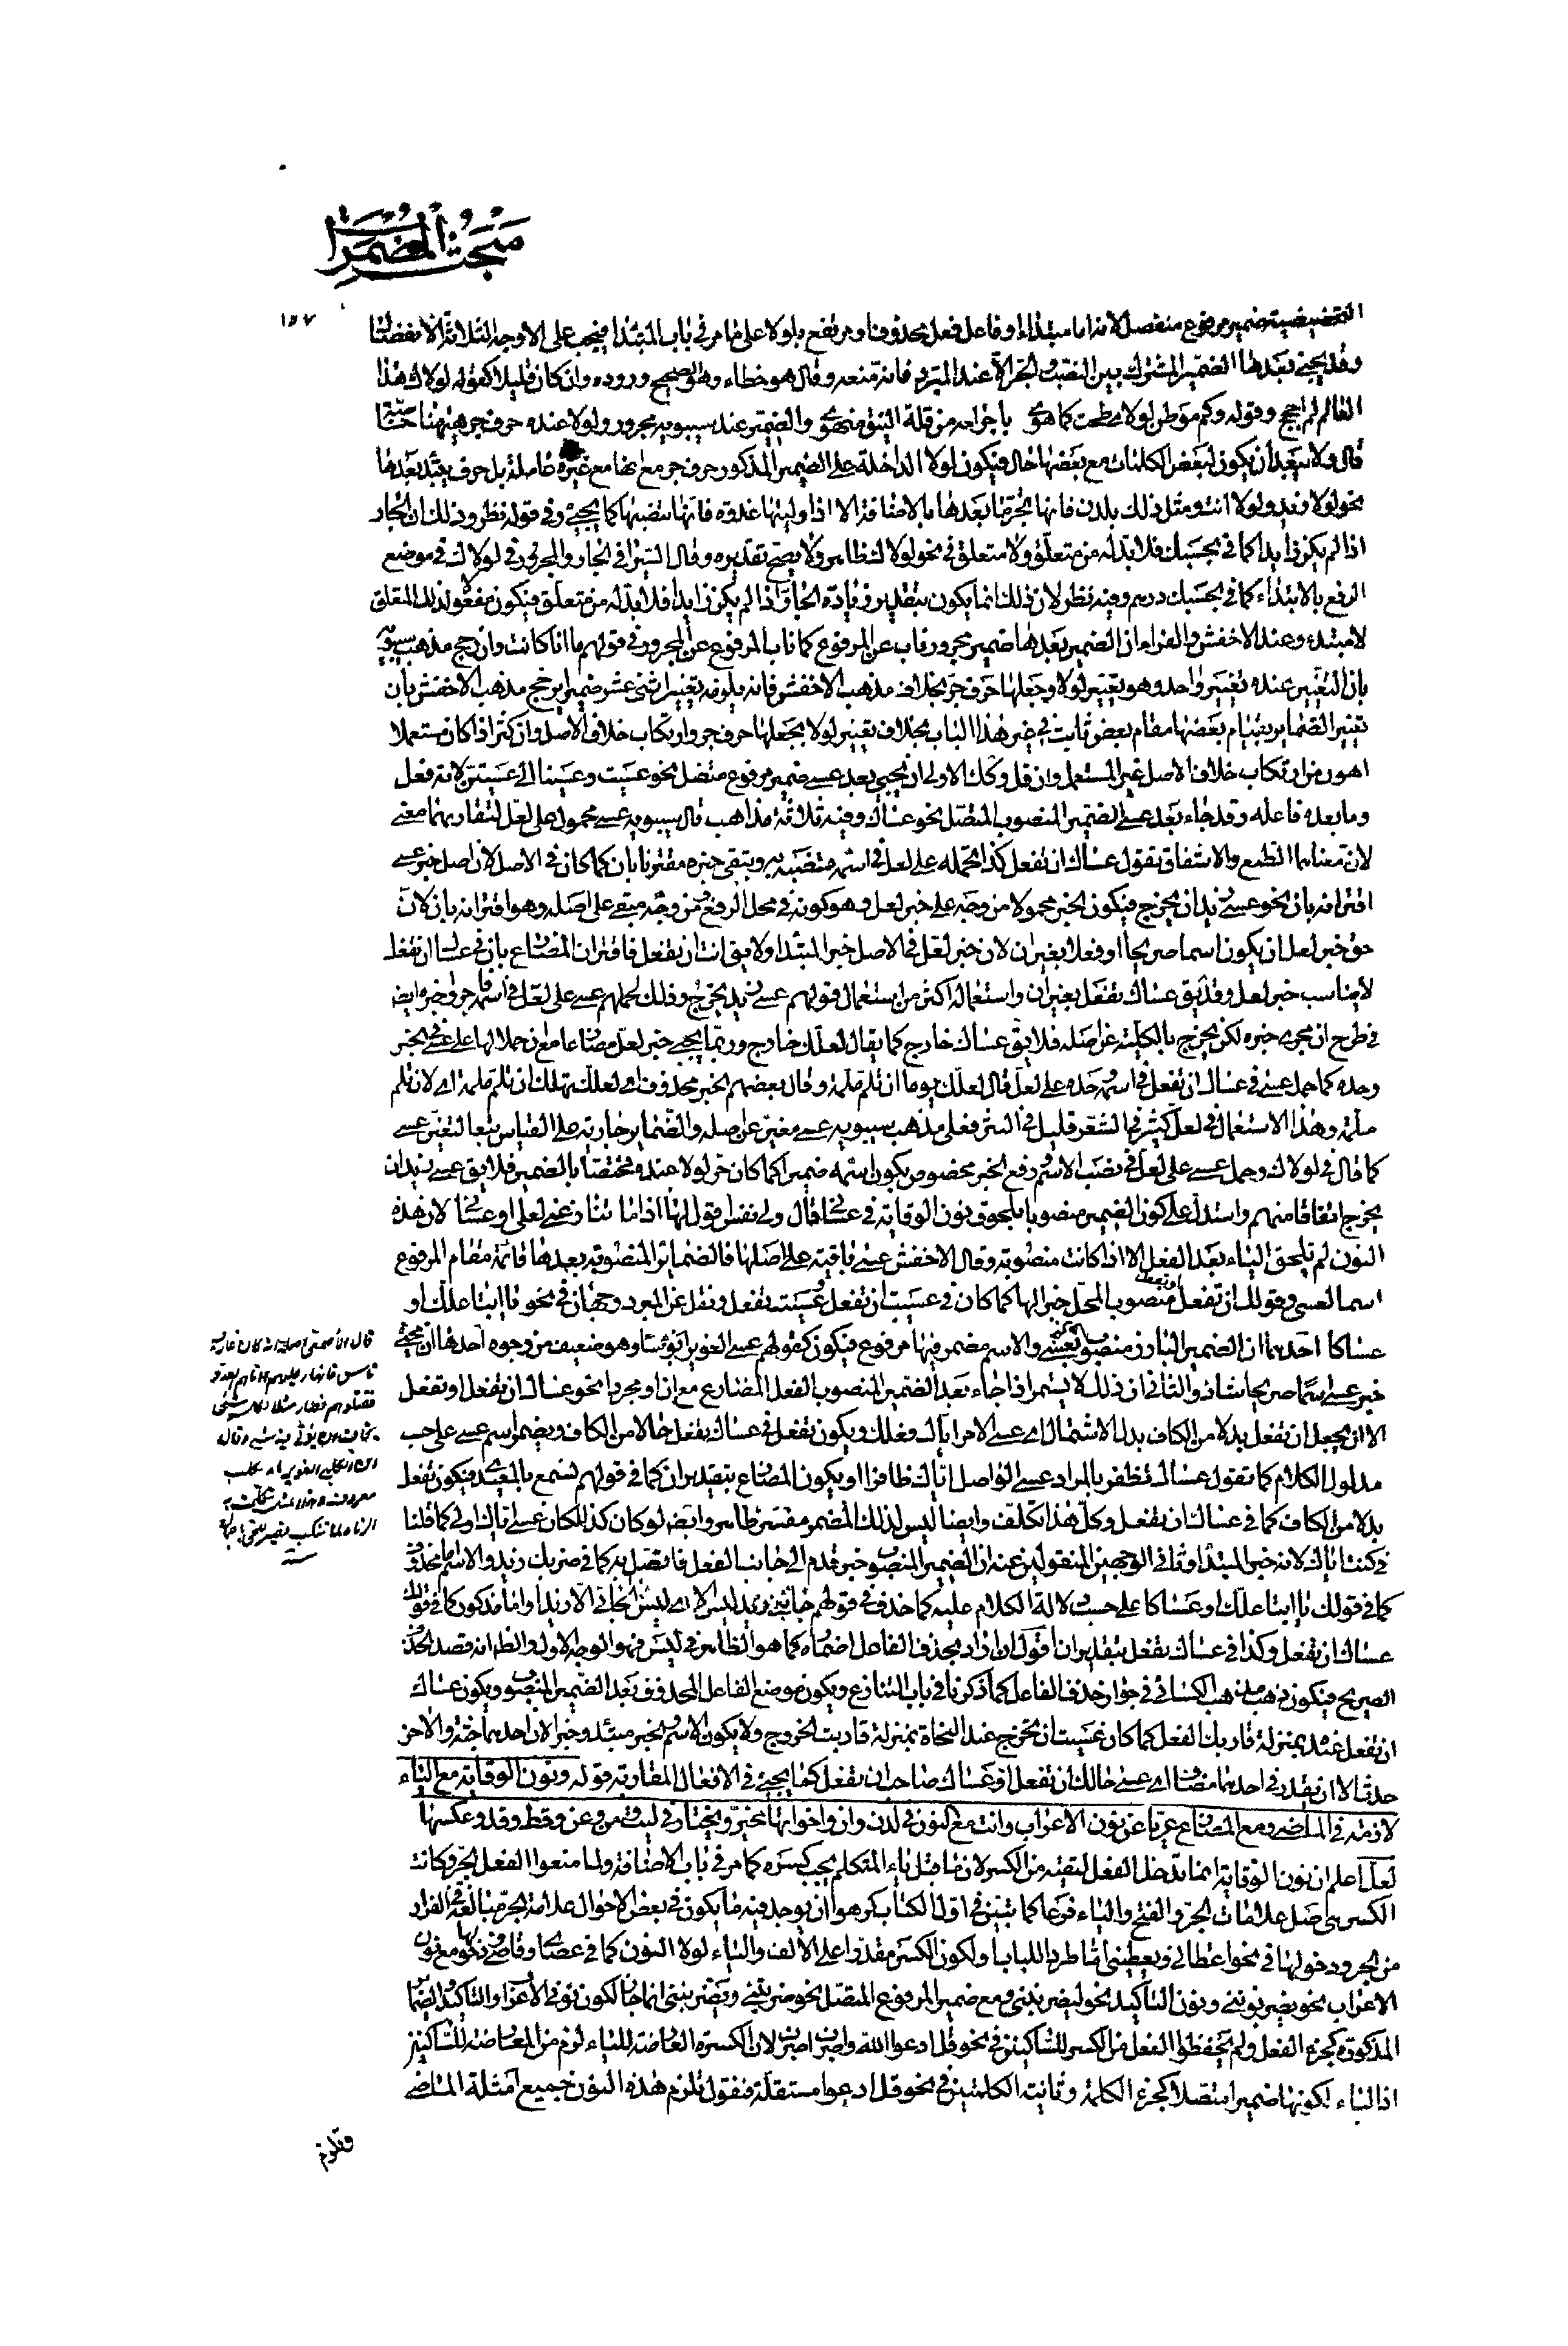 مبحث المضمرات
١٥٧
التخضيضية ضمير مرفوع منفصل لانه اما مبتداء او فاعل فعل محذوف او مرتفع بلولا على ما مر في باب المبتدا فيجب على الاوجه الثلاثة الانفصال
وقد يجئ بعدها الضمير المشترك بين النصب والجر الا عند المبرد فانه منعه وقال هو خطاء والصحيح وروده وان كان قليلا كقوله لولاك هذا
العالم لم احجج وقوله وكم موطن لولاى طحت كما هوى باجرامه من قلة النيق منهوى والضمير عند سيبويه مجرور ولولا عنده حرف جر ههنا خاصة
قال ولا يبعد أن يكون لبعض الكلمات مع بعضها حال فيكون لولا الداخلة على الضمير المذكور حرف جر مع انها مع غيره غير عاملة بل حرف يبتدء بعدها
نحو لولا زيد ولولا انت ومثل ذلك بلدن فانها تجر ما بعدها بالاضافة الا اذا وليتها غدوة فانها تنصبها كما يجيئ وفي قوله نظر وذلك ان الجار
اذا لم يكن زايدا كما في بحسبك فلا بد له من متعلق ولا متعلق في نحو لولاك ظاهر ولا يصح تقديره وقال السيرافي الجار والمجرور في لولاك في موضع
الرفع بالابتداء كما في بحسبك درهم وفيه نظر لان ذلك انما يكون بتقدير زيادة الجار واذا لم يكن زايدا فلا بد له من متعلق فيكون مفعولا لذلك المتعلق
لا مبتدء وعند الاخفش والفراء ان الضمير بعدها ضمير مجرور ناب عن المرفوع كما ناب المرفوع عن المجرور في قولهم ما انا كانت وان رجح مذهب سيبويه
بان التغيير عنده تغيير واحد وهو تغيير لولا وجعلها حرف جر بخلاف مذهب الاخفش فانه يلزمه تغيير اثنى عشر ضميرا يرجح مذهب الاخفش بأن
تغيير الضماير بقيام بعضها مقام بعض ثابت في غير هذا الباب بخلاف تغيير لولا بجعلها حرف جر وارتكاب خلاف الاصل وان كثر اذا كان مستعملا
اهون من ارتكاب خلاف الاصل غير المستعمل وان قل وكك الاولى ان يجيئ بعد عسى ضمير مرفوع متصل نحو عسيت وعسينا الى عسيتن لانه فعل
وما بعده فاعله وقد جاء بعد عسى الضمير المنصوب المتصل نحو عساك وفيه ثلاثة مذاهب قال سيبويه عسى محمول على لعل لتقاربهما معنى
لان معناهما الطمع والاشفاق تقول عساك ان تفعل كذا تحمله على لعل في اسمه فتنصبه به ويبقى خبره مقترنا بان كما كان في الاصل لان اصل خبر عسى
اقترانه بان نحو عسى زيد ان يخرج فيكون الخبر محمولا من وجه على خبر لعل وهو كونه في محل الرفع ومن وجه مبقى على اصله وهو اقترانه بان لان
حق خبر لعل ان يكون اسما صريحا او فعلا بغير ان لان خبر لعل في الاصل خبر المبتدا ولا يق انت ان تفعل فاقتران المضارع بان في عساك ان تفعل
لا يناسب خبر لعل وقد يق عساك تفعل بغير ان واستعماله اكثر من استعمال قولهم عسى زيد يخرج وذلك لحملهم عسى على لعل في اسمه فاجرى خبره ايضا
في طرح ان مجرى خبره لكن لم يخرج بالكلية عن اصله فلا يق عساك خارج كما يقال لعلك خارج وربما يجيئ خبر لعل مضارعا مع ان حملا لها على عسى في الخبر
وحده كما حمل عسى في عساك ان تفعل في اسمه وحده على لعل قال لعلك يوما ان تلم ملمة وقال بعضهم الخبر محذوف اى لعلك تهلك ان تلم ملمة اى لان تلم
ملمة وهذا الاستعمال في لعل كثير في الشعر قليل في النثر فعلى مذهب سيبويه عسى مغير عن اصله والضماير جارية على القياس تبعا لتغير عسى
كما قال في لولاك وحمل عسى على لعل في نصب الاسم ورفع الخبر مخصوص بكون اسمه ضميرا كما كان جر لولا عنده مختصا بالضمير فلا يق عسى زيدا ان
يخرج اتفاقا منهم واستدل على كون الضمير منصوبا بلحوق نون الوقاية في عساني قال ولي نفس اقول لها اذا ما تنازعني لعلى او عساني لان هذه
النون لم تلحق الياء بعد الفعل الا اذا كانت منصوبة وقال الاخفش عسى باقية على اصلها فالضمائر المنصوبة بعدها قائمة مقام المرفوع
اسما لعسى وقولك ان تفعل او تفعل منصوب المحل خبرا لها كما كان في عسيت ان تفعل وعسيت تفعل ونقل عن المبرد وجهان في نحو يا ابتا علك او
عساكا احدهما ان الضمير البارز منصوب بعسى خبره والاسم مضمر فيها مرفوع فيكون كقولهم عسى الغوير ابؤسا وهو ضعيف من وجوه احدها ان مجئ
خبر عسى اسما صريحا شاذ والثاني ان ذلك لا يستمر اذا جاء بعد الضمير المنصوب الفعل المضارع مع ان او مجردا نحو عساك ان تفعل او تفعل
الا ان يجعل ان تفعل بدلا من الكاف بدل الاشتمال اى عسى الامر اياك فعلك ويكون تفعل في عساك تفعل حالا من الكاف ويضمر اسم عسى على حسب
مدلول الكلام كما تقول عساك تظفر بالمراد عسى الواصل اياك ظافرا او يكون المضارع بتقدير ان كما في قولهم تسمع بالمعيدى فيكون تفعل
بدلا من الكاف كما في عساك ان تفعل وكل هذا تكلف وايضا ليس لذلك المضمر مفسر ظاهر وايضا لو كان كذا لكان عسى اياك اولى كما قلنا
في كنت اياك لانه خبر المبتدا وثاني الوجهين المنقولين عنه ان الضمير المنصوب خبر تقدم الى جانب الفعل فاتصل به كما في ضربك زيد والاسم اما محذوف
كما في قولك يا ابتا علك او عساكا على حسب دلالة الكلام عليه كما حذف في قولهم جاءني زيد ليس الا اى ليس الجائي الا زيدا واما مذكور كما في قولك
عساك ان تفعل وكذا في عساك تفعل بتقدير ان اقول ان اراد بحذف الفاعل اضماره كما هو الظاهر في ليس فهو الوجه الاول والظ انه قصد الحذف
الصريح فيكون ذهب مذهب الكسائي في جواز حذف الفاعل كما ذكرنا في باب التنازع ويكون موضع الفاعل المحذوف بعد الضمير المنصوب ويكون عساك
ان تفعل عنده بمنزلة قاربك الفعل كما كان عسيت ان تخرج عند النحاة بمنزلة قاربت الخروج ولا يكون الاسم والخبر مبتدء وخبرا لان احدهما جثة والاخر
حدث الا ان يقدر في احدهما مضاف اى عسى حالك ان تفعل او عساك صاحب ان تفعل كما يجيئ في الافعال المقاربة قوله ونون الوقاية مع الياء
لازمة في الماضى ومع المضارع عريا عن نون الاعراب وانت مع النون في لدن وان واخواتها مخير ويختار في ليت ومن وعن وقط وقد وعكسها
لعل اعلم ان نون الوقاية انما تدخل الفعل لتقيه من الكسر لان ما قبل ياء المتكلم يجب كسره كما مر في باب الاضافة ولما منعوا الفعل الجر وكانت
الكسر هى اصل علامات الجر والفتح والياء فرعاها كما تبين في اول الكتاب كرهوا ان يوجد فيه ما يكون في بعض الاحوال علامة الجر مبالغة في الفرار
من الجر ودخولها في نحو اعطاني ويعطيني اما طردا للباب او لكون الكسر مقدرا على الالف والياء لولا النون كما في عصاى وقاضى ودخولها مع نون
الاعراب نحو يضربونني ونون التاكيد نحو ليضربنني ومع ضمير المرفوع المتصل نحو ضربتني وتضربينني انما جاز لكون نون الاعراب والتاكيد والضماير
المذكورة كجزء الفعل ولم يحفظوا الفعل من الكسر للساكنين في نحو قل ادعوا الله واضربن اضربن لان الكسرة العارضة للياء لزم من العارضة للساكنين
اذ الياء لكونها ضميرا متصلا كجزء الكلمة وثانية الكلمتين في نحو قل ادعوا مستقلة فنقول تلزم هذه النون جميع امثلة الماضى
وتلزم
قال الاصمعى اصله انه كان غار فيه
ناس فانهار عليهم او اتاهم العدو
فقتلوهم فصار مثلا لكل شئ
يخاف ان يؤتى منه شر وقال
ابن الكلبي الغوير ماء لكلب
معروف وهذا المثل تكلمت به
الزباء لما تنكب قصير